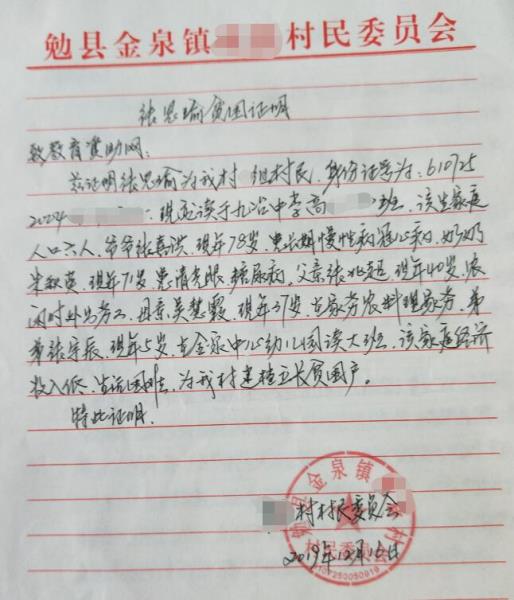 勉县金泉镇 村民委员会
张思瑜贫困证明
致教育资助网:
兹证明张思瑜为我村 组村民, 身份证号为: 610725
2004 . 现就读于九冶中学高 班. 该生家庭
人口六人, 爷爷张嘉洪, 现年78岁, 患长期慢性病冠心病, 奶奶
现年71岁, 患青光眼、糖尿病, 父亲张 现年40岁, 农
闲时外出务工, 母亲吴慧霞, 现年37岁, 在家务农料理家务, 弟
弟张宇辰, 现年5岁, 在金泉中心幼儿园读大班, 该家庭经济
收入低, 生活困难, 为我村建档立卡贫困户。
特此证明.
村村民委员会
2019年12月16日
勉县金泉镇 村
村民委员会